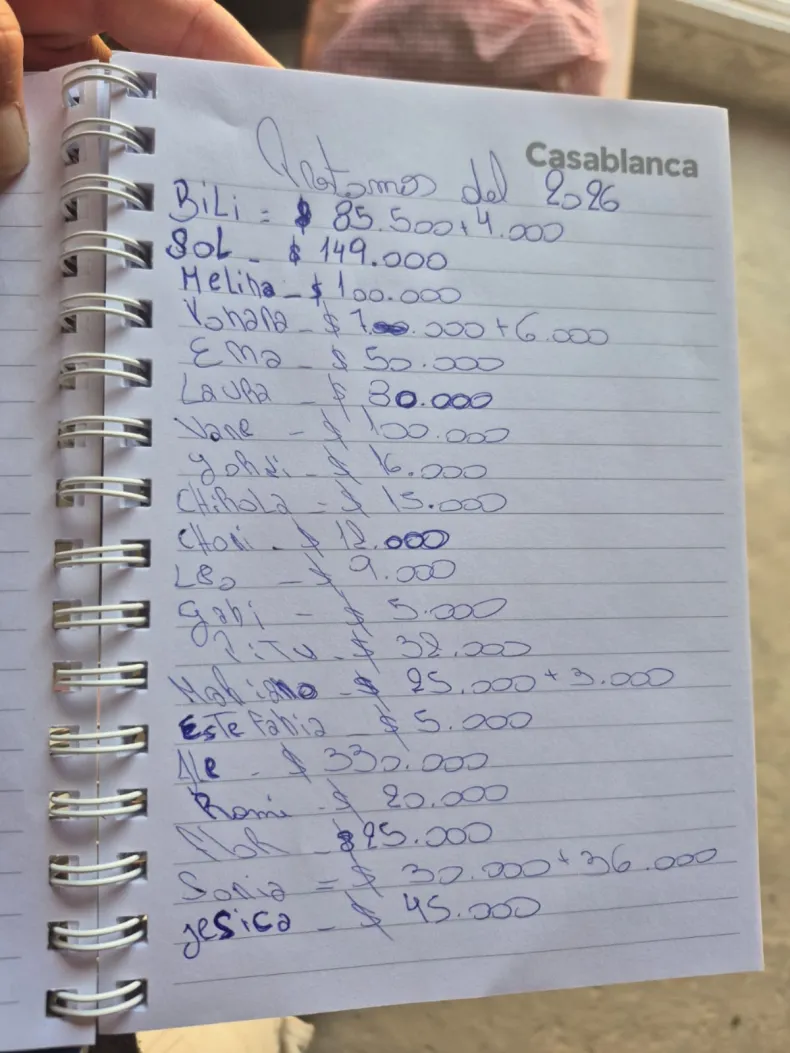 Casablanca
Prestamos del 2026
BiLi = $ 85.500 + 4.000
SOL - $ 149.000
Melina - $ 100.000
Yohana - $ .000 + 6.000
Ema - $ 50.000
Laura - $ 30.000
Vane - $ 100.000
$ 16.000
CHiRoLa = $ 15.000
CHoRi - $ 12.000
Leo - $ 9.000
Gabi - $ 5.000
PiTu - $ 32.000
Mariano - $ 25.000 + 3.000
Estefania - $ 5.000
Ale - $ 330.000
Romi - $ 20.000
$25.000
Sonia = $ 30.000 + 36.000
Jesica - $ 45.000